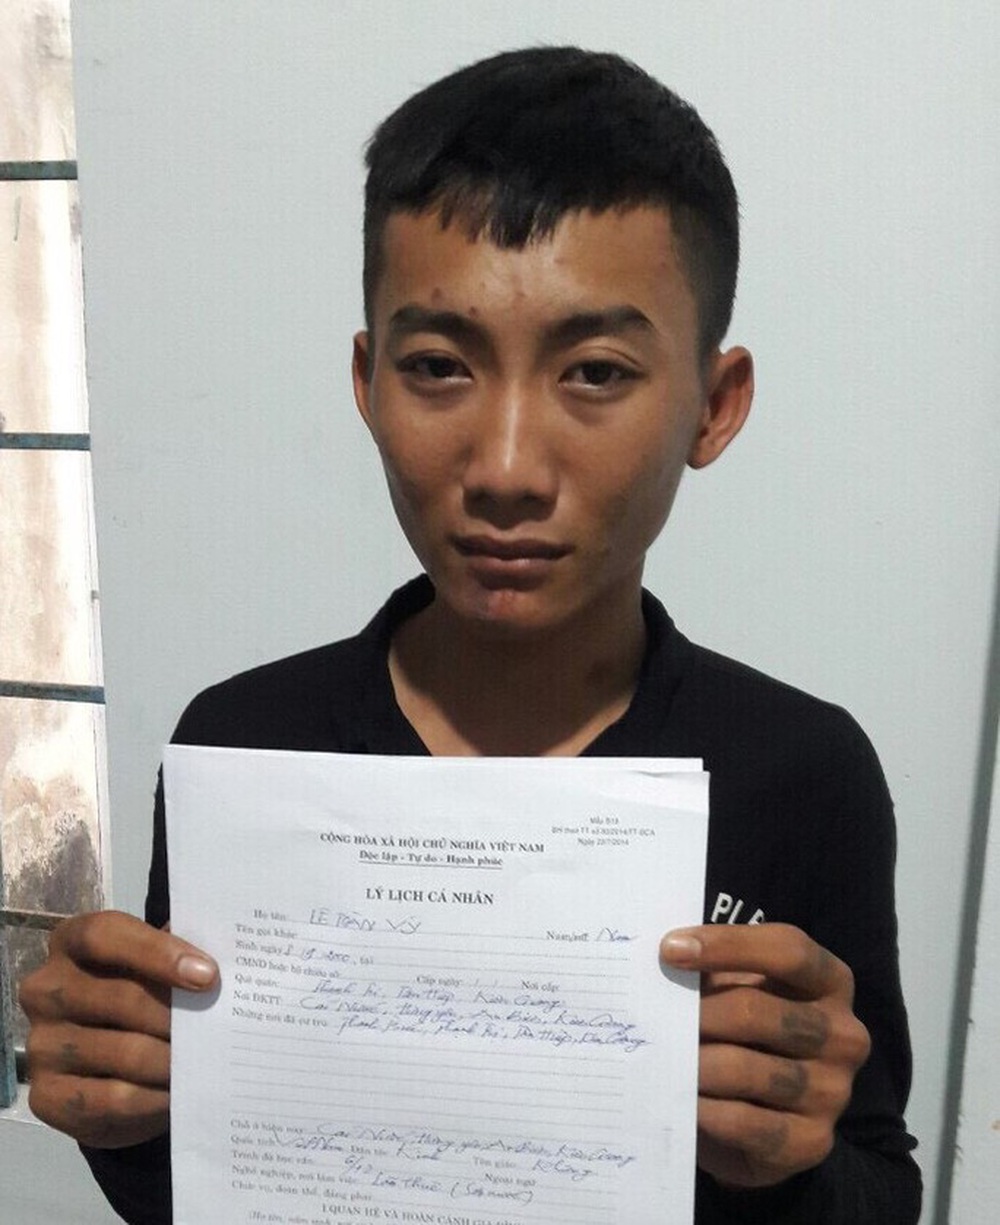 Mẫu B18
BH theo TT số 30/2014/TT-BCA
Ngày 23/7/2014
CỘNG HÒA XÃ HỘI CHỦ NGHĨA VIỆT NAM
Độc lập - Tự do - Hạnh phúc
LÝ LỊCH CÁ NHÂN
Họ tên: LÊ VỸ Nam/nữ: Nam
Tên gọi khác:
Sinh ngày , tại
CMND hoặc hộ chiếu số: Cấp ngày: / / Nơi cấp:
Quê quán: Thạnh Trị, Tân Hiệp, Kiên Giang
Nơi ĐKTT: Cái Nước, Hưng Yên, An Biên, Kiên Giang
Những nơi đã cư trú: Thạnh Trị, Tân Hiệp, Kiên Giang
Chỗ ở hiện nay: Cái Nước, Hưng Yên, An Biên, Kiên Giang
Quốc tịch: Việt Nam Dân tộc: Kinh Tôn giáo: Không
Trình độ học vấn: 6/12 Ngoại ngữ
Nghề nghiệp, nơi làm việc: Làm Thuê
Chức vụ, đoàn thể, đảng phái
I QUAN HỆ VÀ HOÀN CẢNH